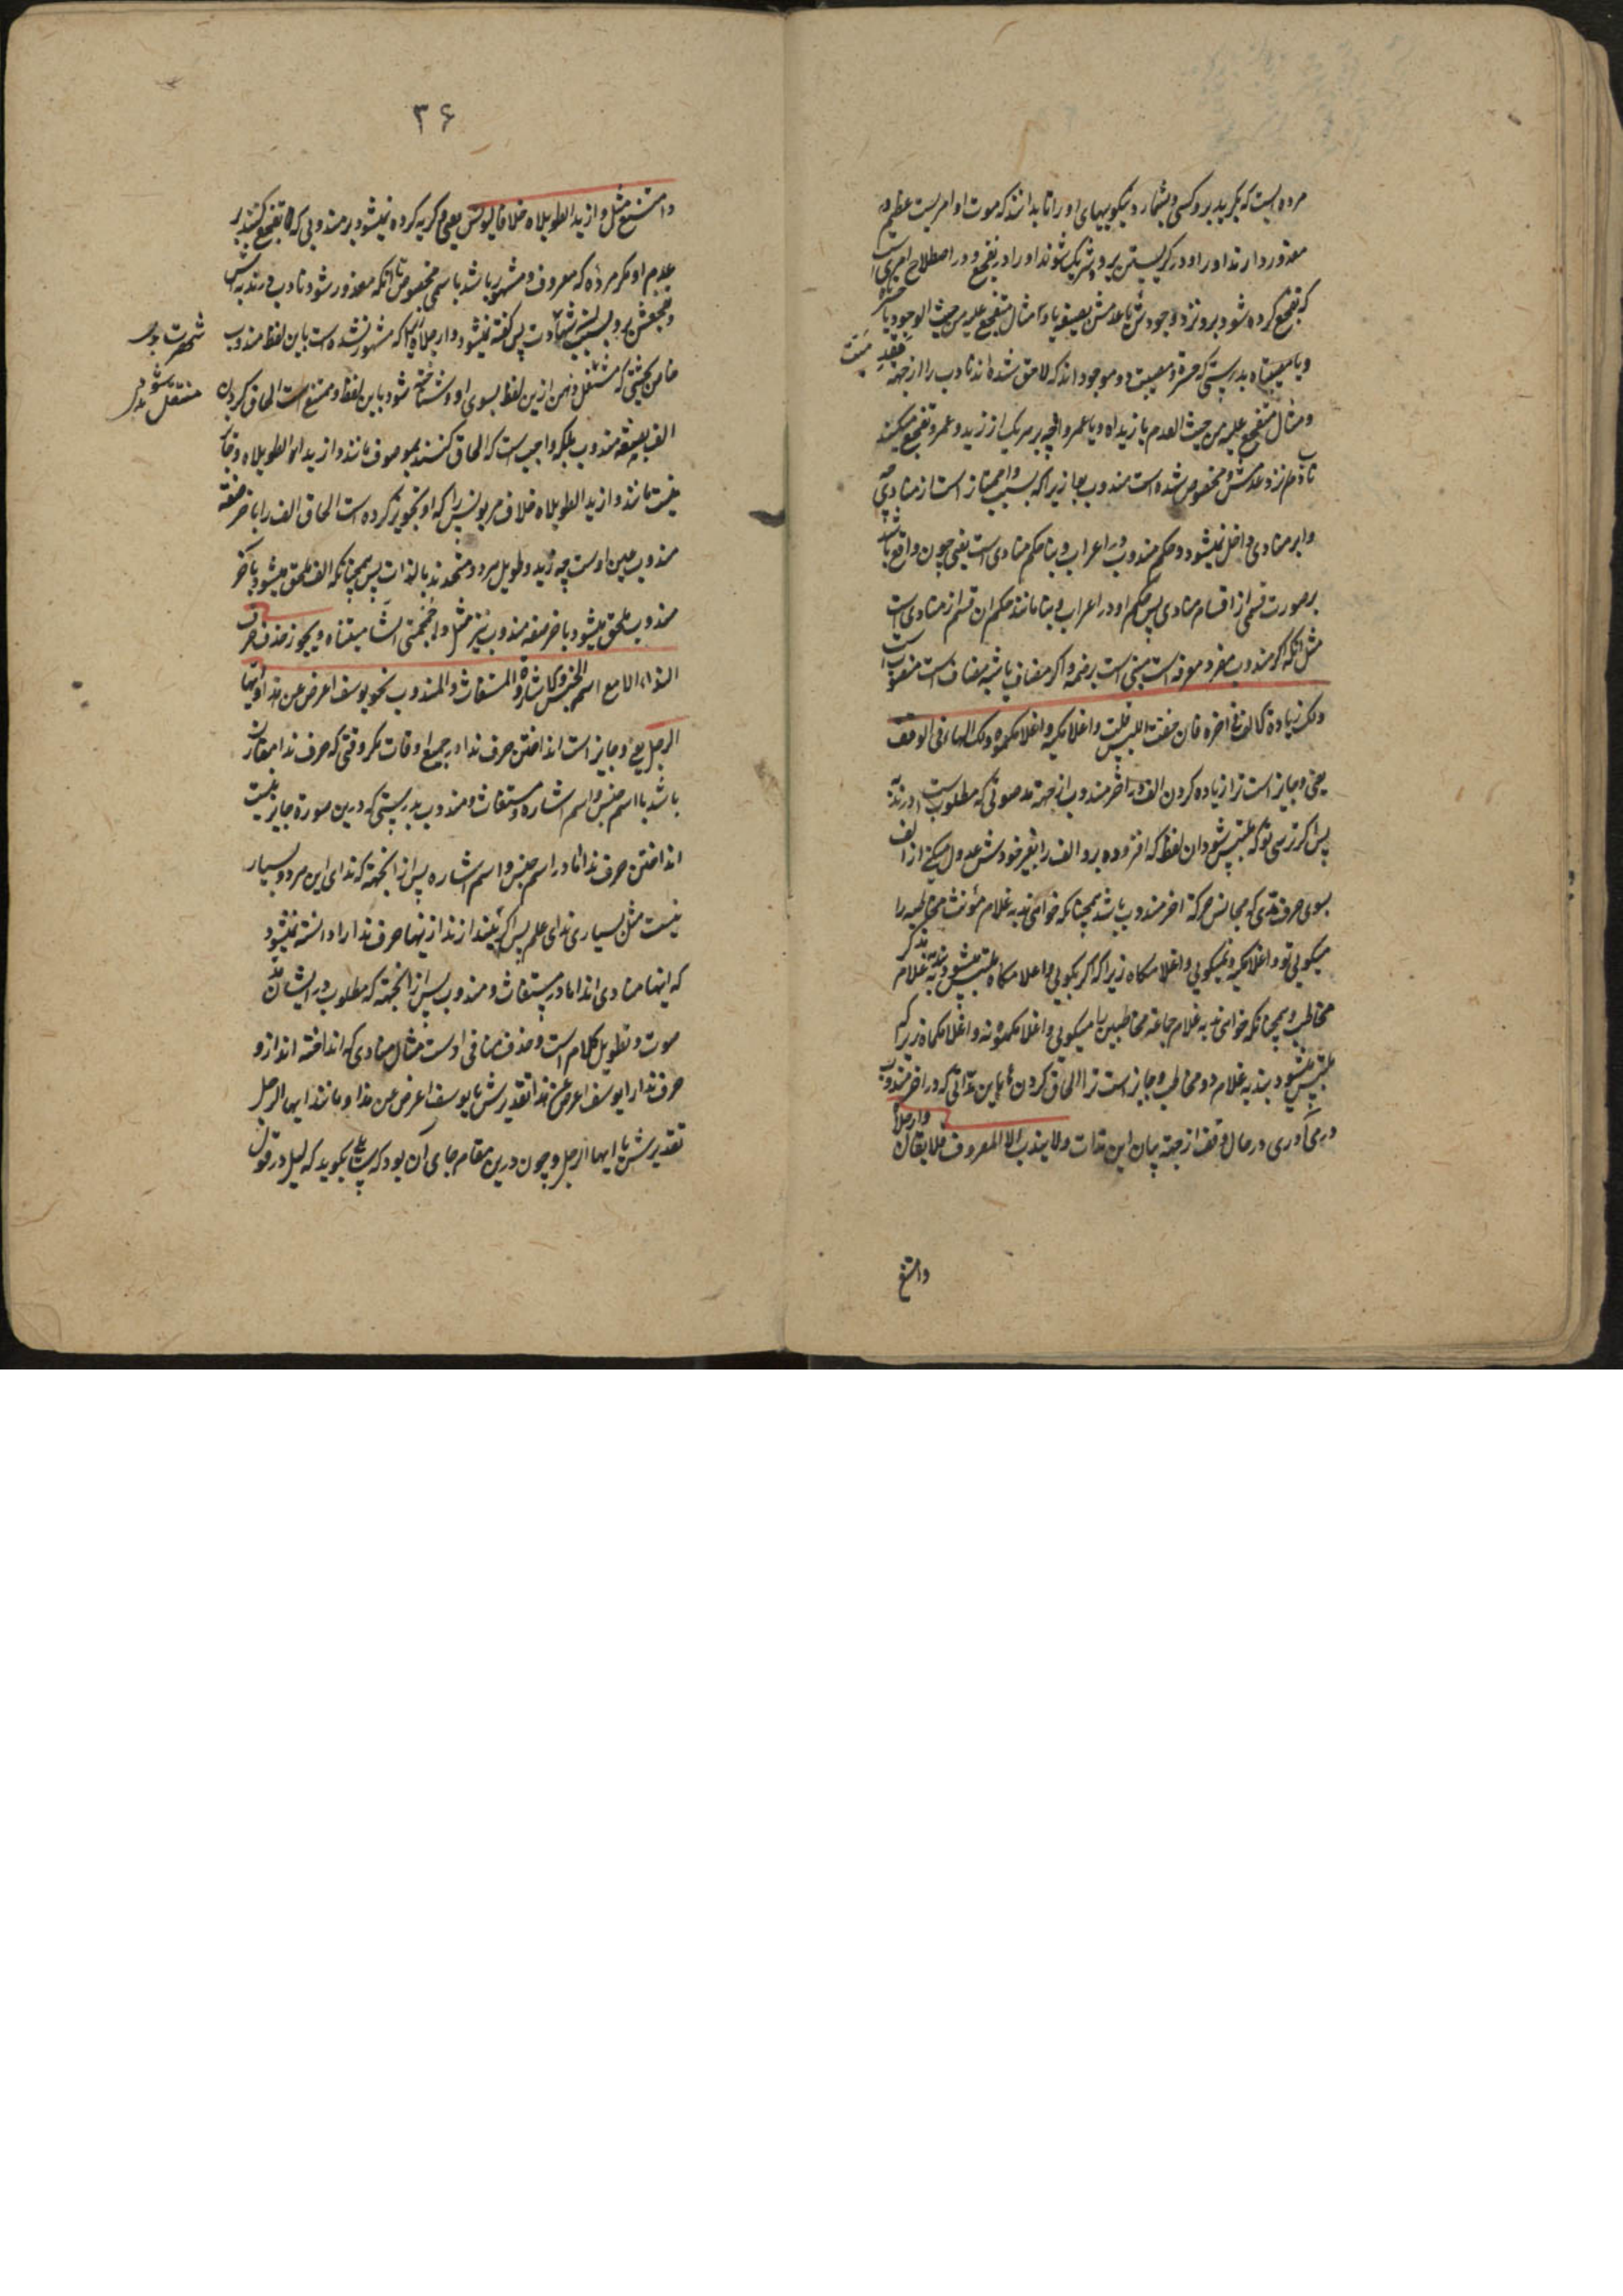 مرده ایست که بگرید برو کسی و بشمارد نیکوییهای او را تا بدانند که موت او امریست عظیم و
معذور دارند او را و در گریستن برو شریک شوند او را در تفجع و در اصطلاح امریست
که تفجع کرده شود برو نزد وجودش یا عدمش بصیغه یا و وا مثال متفجع علیه من حیث الوجود یا حسرتاه
و یا مصیبتاه بدرستی که حسرة و مصیبت دو موجود اند که لاحق شده اند نادب را از جهة فقد میت
و مثال متفجع علیه من حیث العدم یا زیداه و یا عمرواه چه بر هر یک از زید و عمرو تفجع میکند
نادب هم نزد عدمش و مخصوص شده است مندوب بوا زیراکه بسبب وا ممتاز است از منادی چه
وا بر منادی داخل نمیشود و حکم مندوب در اعراب و بنا حکم منادی است یعنی چون واقع باشد
بر صورت قسمی از اقسام منادی پس حکم او در اعراب و بنا مانند حکم ان قسم از منادی است
مثل انکه اگر مندوب مفرد معرفه است مبنی است بر ضمه و اگر مضاف یا شبه مضاف است منصوب است
ولک زیادة الالف فی اخره فان خفت اللبس قلت واغلامکیه واغلامکموه ولک الهاء فی الوقف
یعنی و جایز است ترا زیاده کردن الف در اخر مندوب از جهة مد صوتی که مطلوب است در ندبه
پس اگر ترسی تو که ملتبس شود ان لفظ که افزوده برو الف را بغیر خودش عدول میکنی از الف
بسوی حرف مدی که مجانس حرکة اخر مندوب باشد همچنانکه خواهی ندبه غلام مؤنث مخاطبه را
میگویی تو واغلامکیه و نمیگویی واغلامکاه زیراکه اگر بگویی واغلامکاه ملتبس میشود بندبه غلام مذکر
مخاطب و همچنانکه خواهی ندبه غلام جماعة مخاطبین را میگویی واغلامکموه نه واغلامکماه زیراکه
ملتبس میشود بندبه غلام دو مخاطب و جایز است ترا الحاق کردن ها باین مداتی که در اخر مندوب
در می آوری در حال وقف از جهة بیان این مدات ولا یندب الا المعروف فلا یقال وارجلاه
وامتنع
۳۶
وامتنع مثل وازید الطویلاه خلافا لیونس یعنی و گریه کرده نمیشود بر مندوبی که تفجع کنند بر
عدم او مگر مرده که معروف و مشهور باشد باسمی مخصوص تا انکه معذور شود نادب در ندبه اش
و تفجعش برو بسبب شهادت پس گفته نمیشود وارجلاه زیراکه مشهور نشده است باین لفظ مندوب
خاص بحیثی که منتقل ذهن ازین لفظ بسوی او و شناخته شود باین لفظ و ممتنع است الحاق کردن
شهرت بود
منتقل شود
الف بصفة مندوب بلکه واجب است که الحاق کنند بموصوف مانند وازیداه الطویل و جایز
نیست مانند وازید الطویلاه خلاف مر یونس را که او تجویز کرده است الحاق الف را باخر صفة
مندوب عین اوست چه زید و طویل هر دو متحدند بالذات پس همچنانکه الف ملحق میشود باخر
مندوب ملحق میشود باخر صفه مندوب نیز مثل واجمجمتی الشامیتیناه ویجوز حذف حرف
النداء الا مع اسم الجنس والاشارة والمستغاث والمندوب نحو یوسف اعرض عن هذا وایها
الرجل یعنی و جایز است انداختن حرف ندا در جمیع اوقات مگر وقتی که حرف ندا مقارن
باشد با اسم جنس و اسم اشاره و مستغاث و مندوب بدرستی که درین صورة جایز نیست
انداختن حرف ندا اما در اسم جنس و اسم اشاره پس از انجهة که ندای این هر دو بسیار
نیست مثل بسیاری ندای علم پس اگر بیندازند ازینها حرف ندا را دانسته نمیشود
که اینها منادی اند اما در مستغاث و مندوب پس از انجهة که مطلوب در ایشان مد
صوت و تطویل کلام است و حذف منافی اوست مثال منادی که انداخته اند ازو
حرف ندا را یوسف اعرض عن هذا تقدیرش یا یوسف اعرض عن هذا و مانند ایها الرجل
تقدیرش یا ایها الرجل و چون درین مقام جای آن بود که سائلی بگوید که لیل در قول